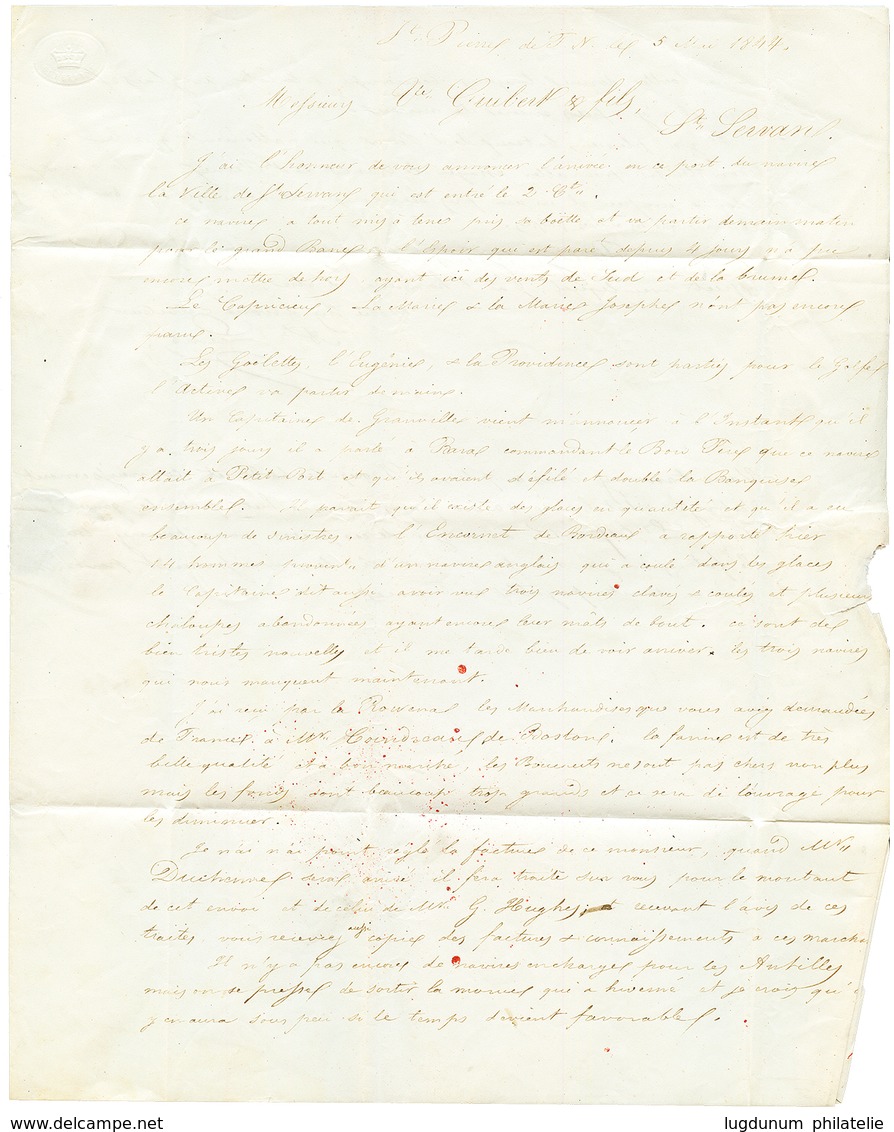 St Pierre de T. N. le 5 Mai 1844.
Messieurs Vve Guibert & fils,
St Servan.
J'ai l'honneur de vous annoncer l'arrivée en ce port du navire
la Ville de St Servan qui est entré le 2 Ct.
ce navire a tout mis à terre pris sa boëtte et va partir demain matin
pour le grand Banc, l'Espoir qui est paré depuis 4 jours n'a pu
encore mettre dehors ayant ici des vents de Sud et de la brume.
Le Capricieux, La Marie & la Marie Josephe n'ont pas encore
parus.
Les Goëlettes, l'Eugénie, & la Providence sont parties pour le Golfe
l'Active va partir demain.
Un Capitaine de Granville vient m'annoncer à l'Instant qu'il
y a trois jours il a parlé à commandant le Bon Père que ce navire
allait à Petit Port et qu'ils avaient défilé et doublé la Banquise
ensemble. Il parait qu'il existe des glaces en quantité et qu'il a eu
beaucoup de sinistres. l'Encornet de Bordeaux a rapporté hier
14 hommes provent. d'un navire anglais qui a coulé dans les glaces
le Capitaine dit aussi avoir vu trois navires & coulés et plusieurs
chaloupes abandonnées ayant encore leur mâts de bout. ce sont de
bien tristes nouvelles et il me tarde bien de voir arriver les trois navires
qui nous manquent maintenant.
J'ai reçu par la Rowena les Marchandises que vous aviez demandées
de France, à Mr. de Boston. la farine est de très
belle qualité et à bon marché, les Boucauts ne sont pas chers non plus
mais les sont beaucoup trop grands et ce sera de l'ouvrage pour
les diminuer.
Je n'ai n'ai point réglé la facture de ce monsieur, quand Mr.
Duchesne sera arrivé il fera traite sur vous pour le montant
de cet envoi et de celui de Mr. G. Hughes, et recevant l'avis de ces
traites vous recevrez aussi copie des factures & connaissements a ces marcha
Il n'y a pas encore de navires en charge pour les Antilles
mais on se presse de sortir la morue qui a hiverné et je crois qu'il
y en aura sous peu si le temps devient favorable.
lugdunum philatelie